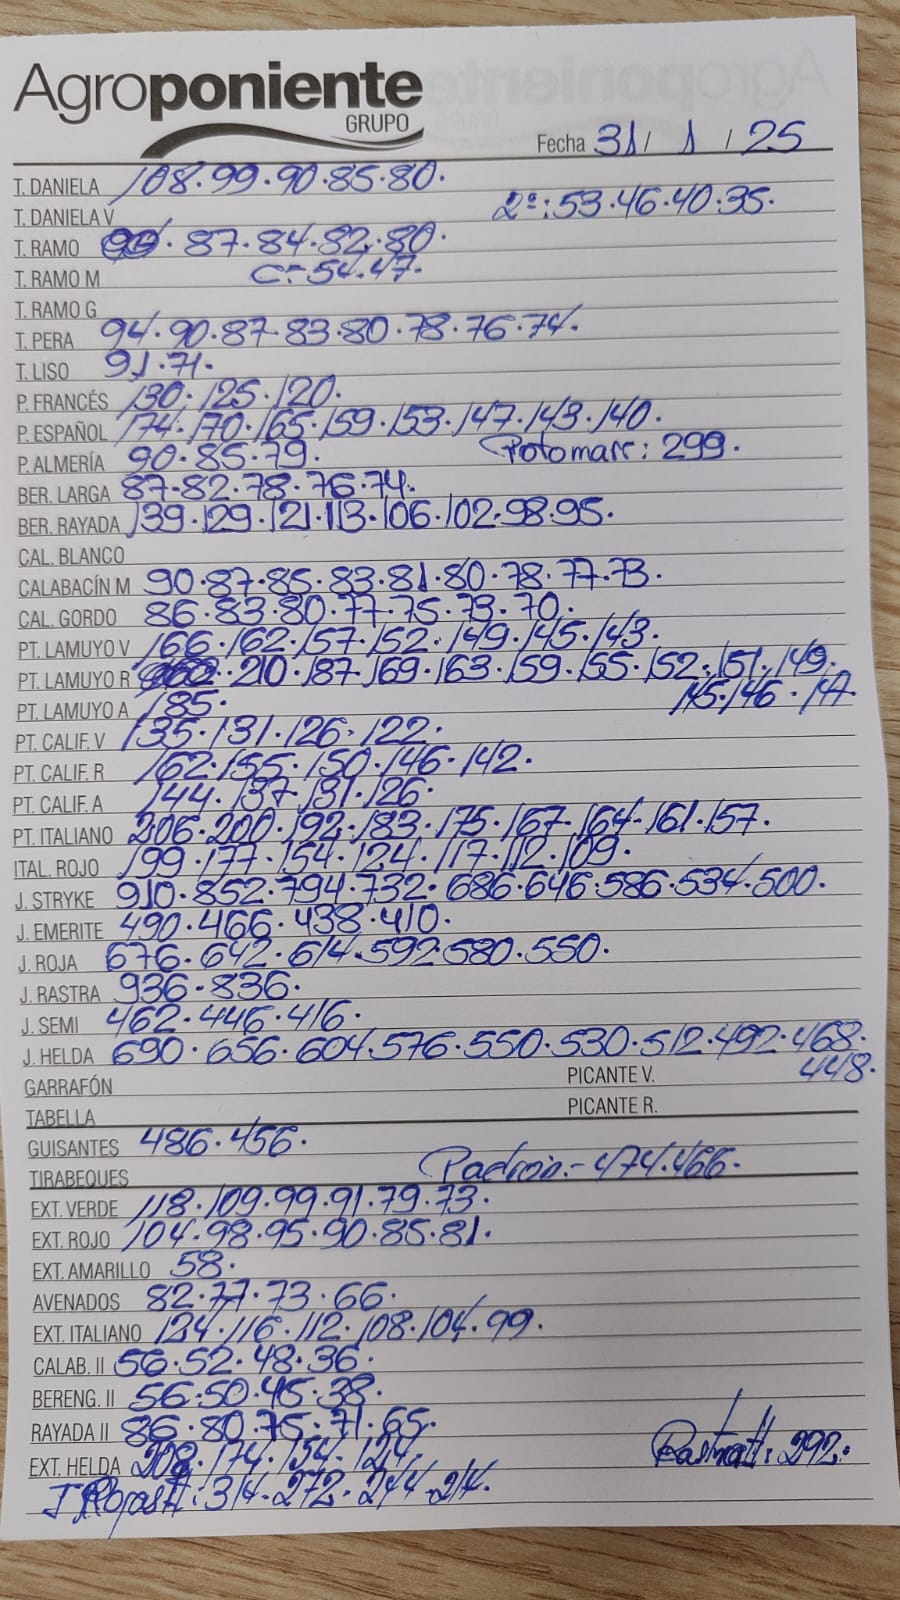 Agroponiente
GRUPO
Fecha 31 / 1 / 25
T. DANIELA 108. 99. 90. 85. 80.
T. DANIELA V 2ª: 53. 46. 40. 35.
T. RAMO 87. 84. 82. 80.
T. RAMO M C = 54. 47.
T. RAMO G
T. PERA 94. 90. 87. 83. 80. 78. 76. 74.
T. LISO 91. 71.
P. FRANCÉS 130. 125. 120.
P. ESPAÑOL 174. 170. 165. 159. 153. 147. 143. 140.
P. ALMERÍA 90. 85. 79. Potomarr: 299.
BER. LARGA 87. 82. 78. 76. 74.
BER. RAYADA 139. 129. 121. 113. 106. 102. 98. 95.
CAL. BLANCO
CALABACÍN M 90. 87. 85. 83. 81. 80. 78. 77. 73.
CAL. GORDO 86. 83. 80. 77. 75. 73. 70.
PT. LAMUYO V 166. 162. 157. 152. 149. 145. 143.
PT. LAMUYO R 210. 187. 169. 163. 159. 155. 152. 151. 149.
146.
PT. LAMUYO A 185.
PT. CALIF. V 135. 131. 126. 122.
PT. CALIF. R 162. 155. 150. 146. 142.
PT. CALIF. A 144. 137. 131. 126.
PT. ITALIANO 206. 200. 192. 183. 175. 167. 164. 161. 157.
ITAL. ROJO 199. 177. 154. 124. 117. 112. 109.
J. STRYKE 910. 852. 794. 732. 686. 646. 586. 534. 500.
J. EMERITE 490. 466. 438. 410.
J. ROJA 676. 642. 614. 592. 580. 550.
J. RASTRA 936. 836.
J. SEMI 462. 446. 416.
J. HELDA 690. 656. 604. 576. 550. 530. 512. 492. 468.
448.
GARRAFÓN PICANTE V.
TABELLA PICANTE R.
GUISANTES 486. 456.
TIRABEQUES Padrón.- 474. 466.
EXT. VERDE 118. 109. 99. 91. 79. 73.
EXT. ROJO 104. 98. 95. 90. 85. 81.
EXT. AMARILLO 58.
AVENADOS 82. 77. 73. 66.
EXT. ITALIANO 124. 116. 112. 108. 104. 99.
CALAB. II 56. 52. 48. 36.
BERENG. II 56. 50. 45. 38.
RAYADA II 86. 80. 75. 71. 65.
EXT. HELDA 208. 174. 154. 124. 292.
314. 272. 244. 214.